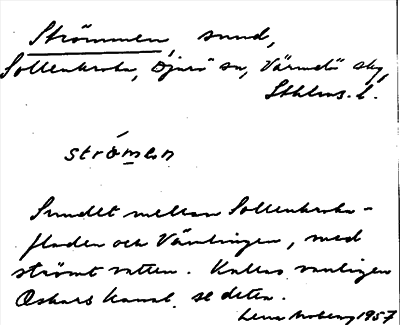 Strömmen, sund,
Sollenkroka, Djurö sn, Värmdö skg,
Sthlms. l.
strömen
Sundet mellan Sollenkroka-
fladen och Vämlingen, med
strömt vatten. Kallas vanligen
Oskars kanal, se detta.
Lena Moberg 1957